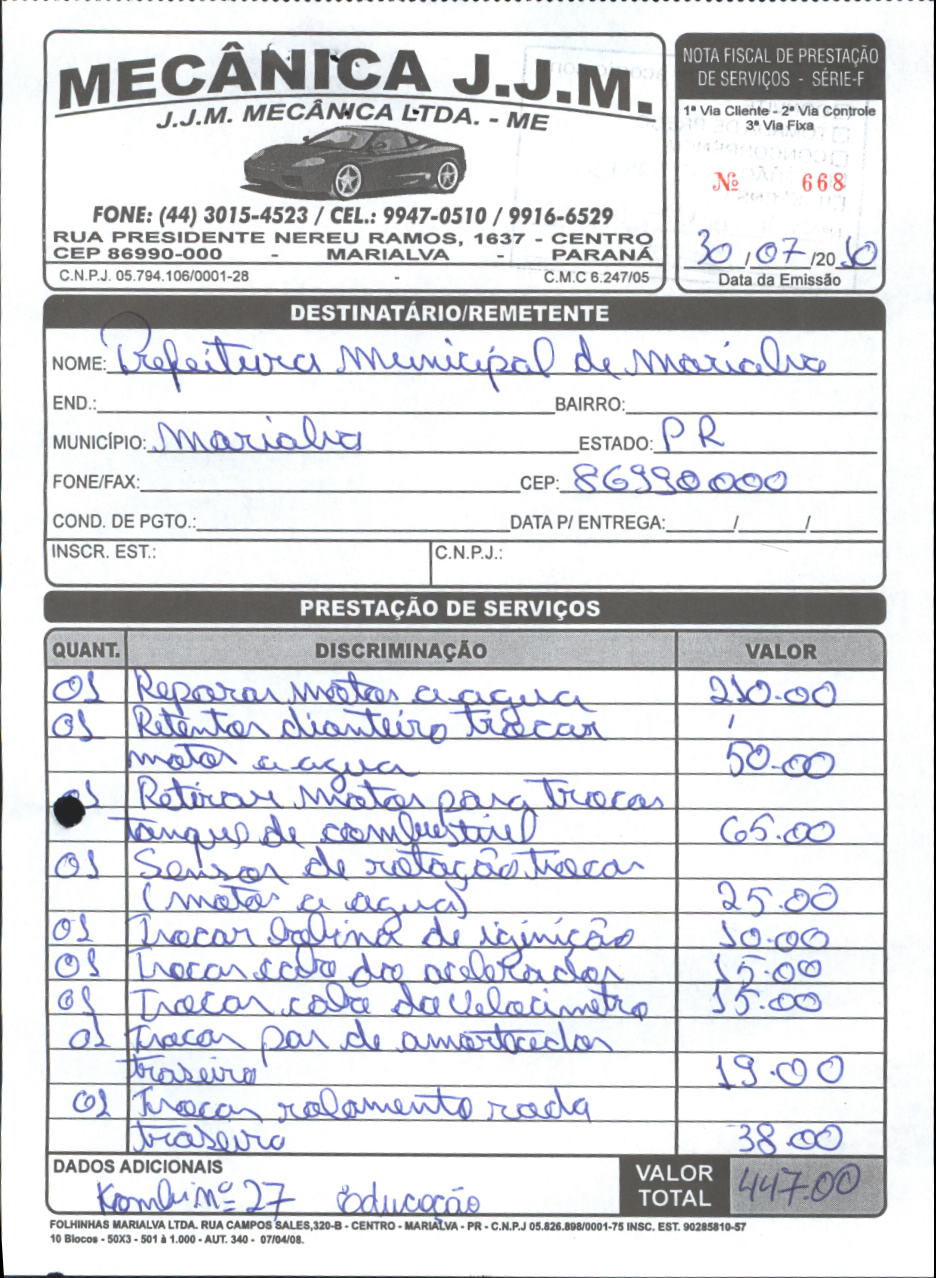 MECÂNICA J.J.M.
J.J.M. MECÂNICA LTDA. - ME
FONE: (44) 3015-4523 / CEL.: 9947-0510 / 9916-6529
RUA PRESIDENTE NEREU RAMOS, 1637 - CENTRO
CEP 86990-000 - MARIALVA - PARANÁ
C.N.P.J. 05.794.106/0001-28 - C.M.C 6.247/05
NOTA FISCAL DE PRESTAÇÃO
DE SERVIÇOS - SÉRIE-F
1ª Via Cliente - 2ª Via Controle
3ª Via Fixa
Nº 668
30/07/2010
Data da Emissão
DESTINATÁRIO/REMETENTE
NOME: Prefeitura Municipal de Marialva
END.: BAIRRO:
MUNICÍPIO: Marialva ESTADO: PR
FONE/FAX: CEP: 86990000
COND. DE PGTO.: DATA P/ ENTREGA: / /
INSCR. EST.: C.N.P.J.:
PRESTAÇÃO DE SERVIÇOS
QUANT. DISCRIMINAÇÃO VALOR
01 Reparar motor a agua 210.00
01 Retentor dianteiro trocar
motor a agua 50.00
01 Retirar motor para trocar
tanque de combustivel 65.00
01 Sensor de rotação trocar
(motor a agua) 25.00
01 Trocar bobina de iginição 10.00
01 Trocar cabo do acelerador 15.00
01 Trocar cabo do velocimetro 15.00
01 Trocar par de amortecedor
traseiro 19.00
01 Trocar rolamento roda
traseiro 38.00
DADOS ADICIONAIS
Kombi nº 27 Educação
VALOR
TOTAL 447.00
FOLHINHAS MARIALVA LTDA. RUA CAMPOS SALES,320-B - CENTRO - MARIALVA - PR - C.N.P.J 05.826.898/0001-75 INSC. EST. 90285810-57
10 Blocos - 50X3 - 501 à 1.000 - AUT. 340 - 07/04/08.